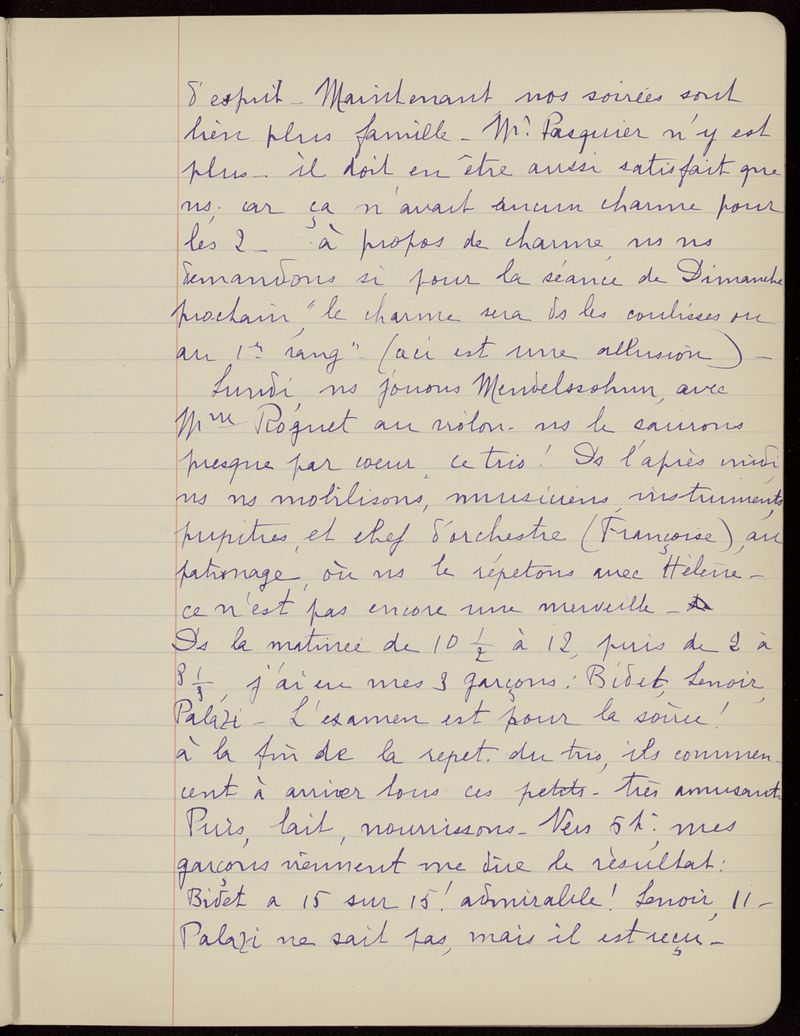 d'esprit - Maintenant nos soirées sont
bien plus famille - Mr. Pasquier n'y est
plus - il doit en être aussi satisfait que
ns, car ça n'avait aucun charme pour
les 2 - à propos de charme, ns ns
demandons si, pour la séance de Dimanche
prochain, "le charme sera ds les coulisses ou
au 1er rang" - (ceci est une allusion) -
Lundi, ns jouons Mendelssohn, avec
Mme Roguet au violon - ns le saurons
presque par coeur, ce trio! Ds l'après midi,
ns ns mobilisons, musiciens, instruments,
pupitres, et chef d'orchestre (Françoise), au
patronage, où ns le répétons avec Hélène -
ce n'est pas encore une merveille -
Ds la matinée de 10 1/2 à 12, puis de 2 à
3 1/2, j'ai eu mes 3 garçons: Bidet, Lenoir,
Palazi - L'examen est pour la soirée!
à la fin de la repet. du trio, ils commen-
cent à arriver tous ces petits - très amusants
Puis, lait, nourrissons - Vers 5h. mes
garçons viennent me dire le résultat:
Bidet a 15 sur 15! admirable! Lenoir, 11 -
Palazi ne sait pas, mais il est reçu -